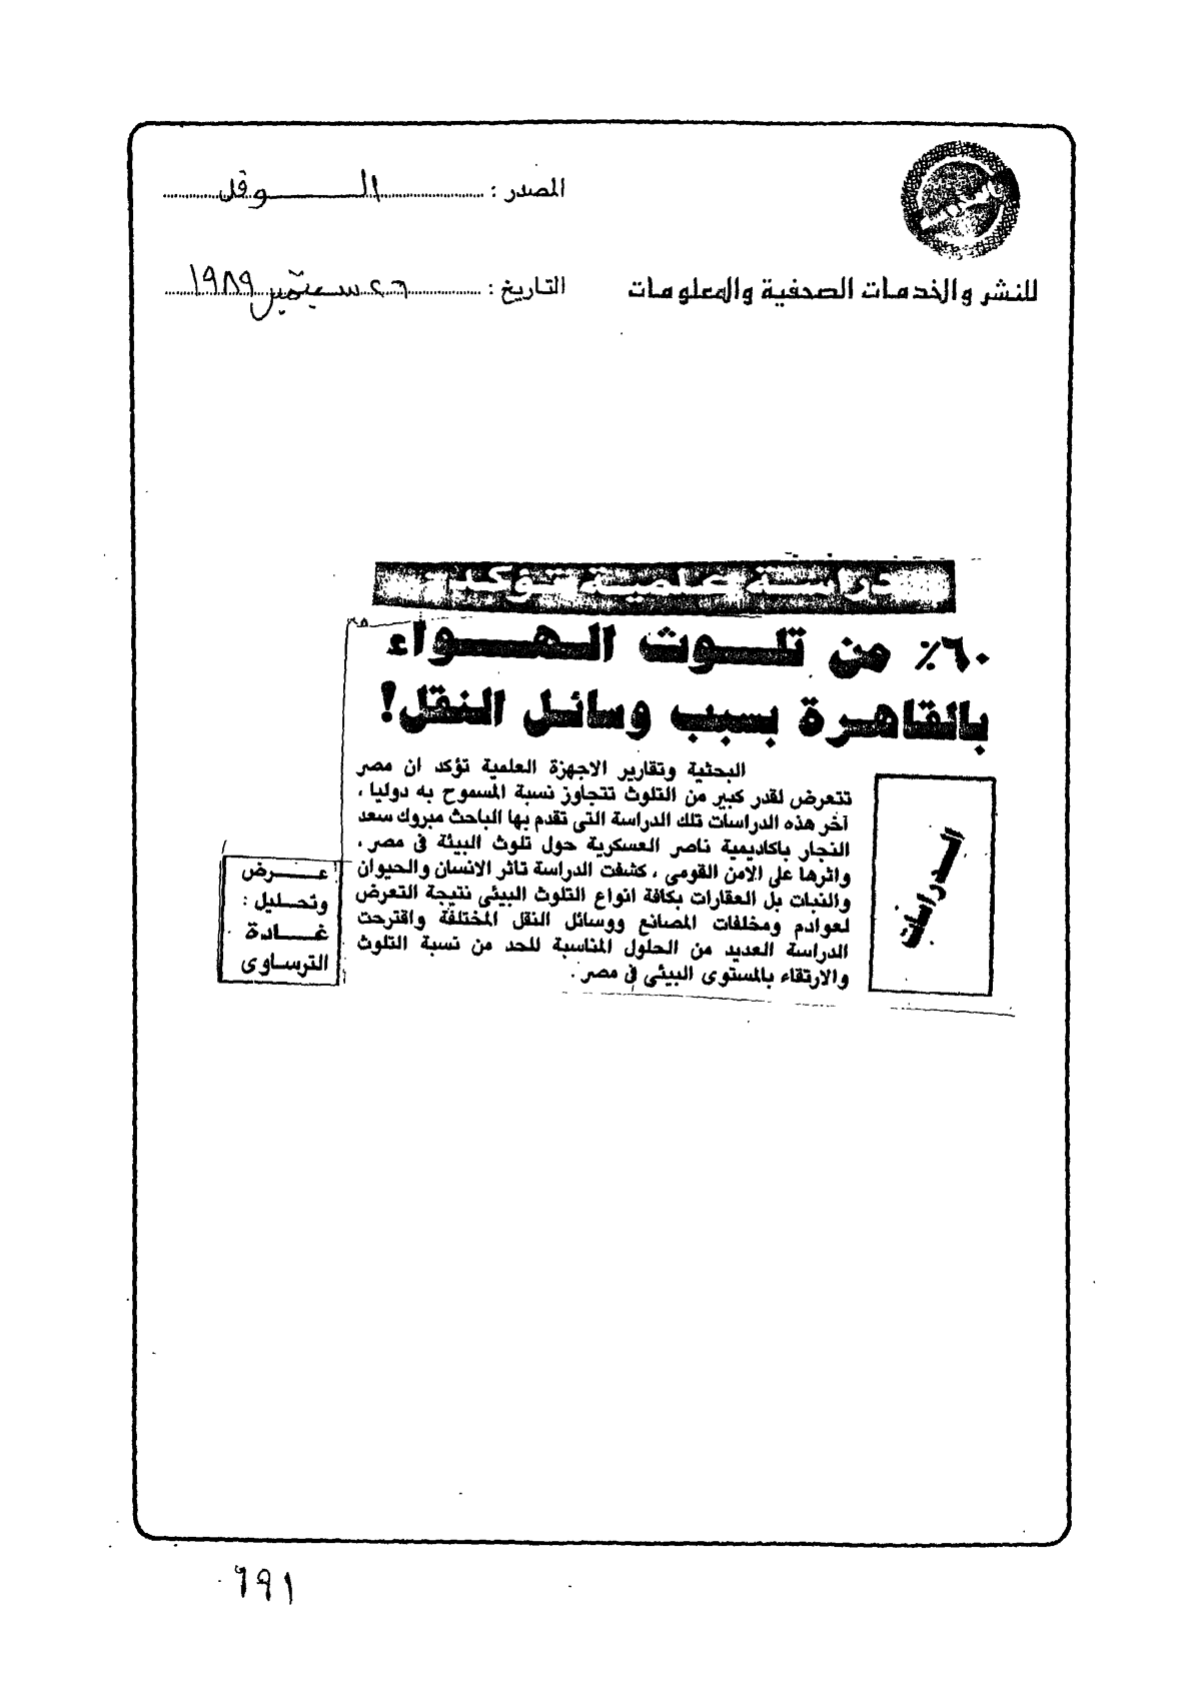 المصدر : الوفد
للنشر والخدمات الصحفية والمعلومات
التاريخ : ٢٦ سبتمبر ١٩٨٩
دراسة علمية تؤكد
٦٠٪ من تلوث الهواء
بالقاهرة بسبب وسائل النقل!
الدراسات
البحثية وتقارير الاجهزة العلمية تؤكد ان مصر
تتعرض لقدر كبير من التلوث تتجاوز نسبة المسموح به دوليا ،
آخر هذه الدراسات تلك الدراسة التى تقدم بها الباحث مبروك سعد
النجار باكاديمية ناصر العسكرية حول تلوث البيئة فى مصر ،
واثرها على الامن القومى ، كشفت الدراسة تاثر الانسان والحيوان
والنبات بل العقارات بكافة انواع التلوث البيئى نتيجة التعرض
لعوادم ومخلفات المصانع ووسائل النقل المختلفة واقترحت
الدراسة العديد من الحلول المناسبة للحد من نسبة التلوث
والارتقاء بالمستوى البيئى فى مصر .
عرض
وتحليل :
غادة
الترساوى
٦٩١